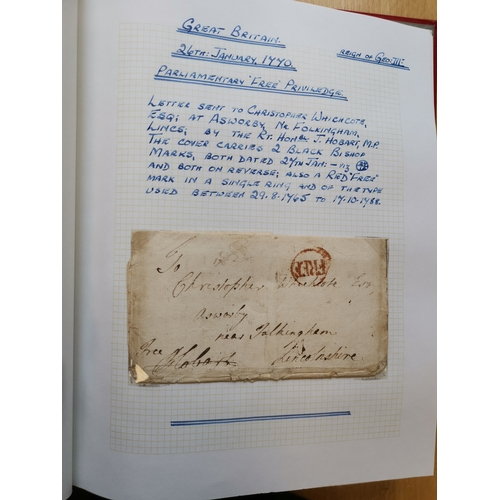 GREAT BRITAIN.
26TH. JANUARY 1770.
REIGN OF GEO. III.
PARLIAMENTARY "FREE" PRIVILEDGE.
LETTER SENT TO CHRISTOPHER WHICHCOTE,
ESQ; AT ASWORBY, NR FOLKINGHAM,
LINCS; BY THE RT. HONBLE J. HOBART, M.P.
THE COVER CARRIES 2 BLACK BISHOP
MARKS, BOTH DATED 27TH JAN:
AND BOTH ON REVERSE; ALSO A RED "FREE"
MARK IN A SINGLE RING AND OF THE TYPE
USED BETWEEN 29.8.1765 TO 17.10.1788.
To
FREE
Christopher Whichcote Esq
asworby
near Falkingham
Free
J Hobart
Lincolnshire